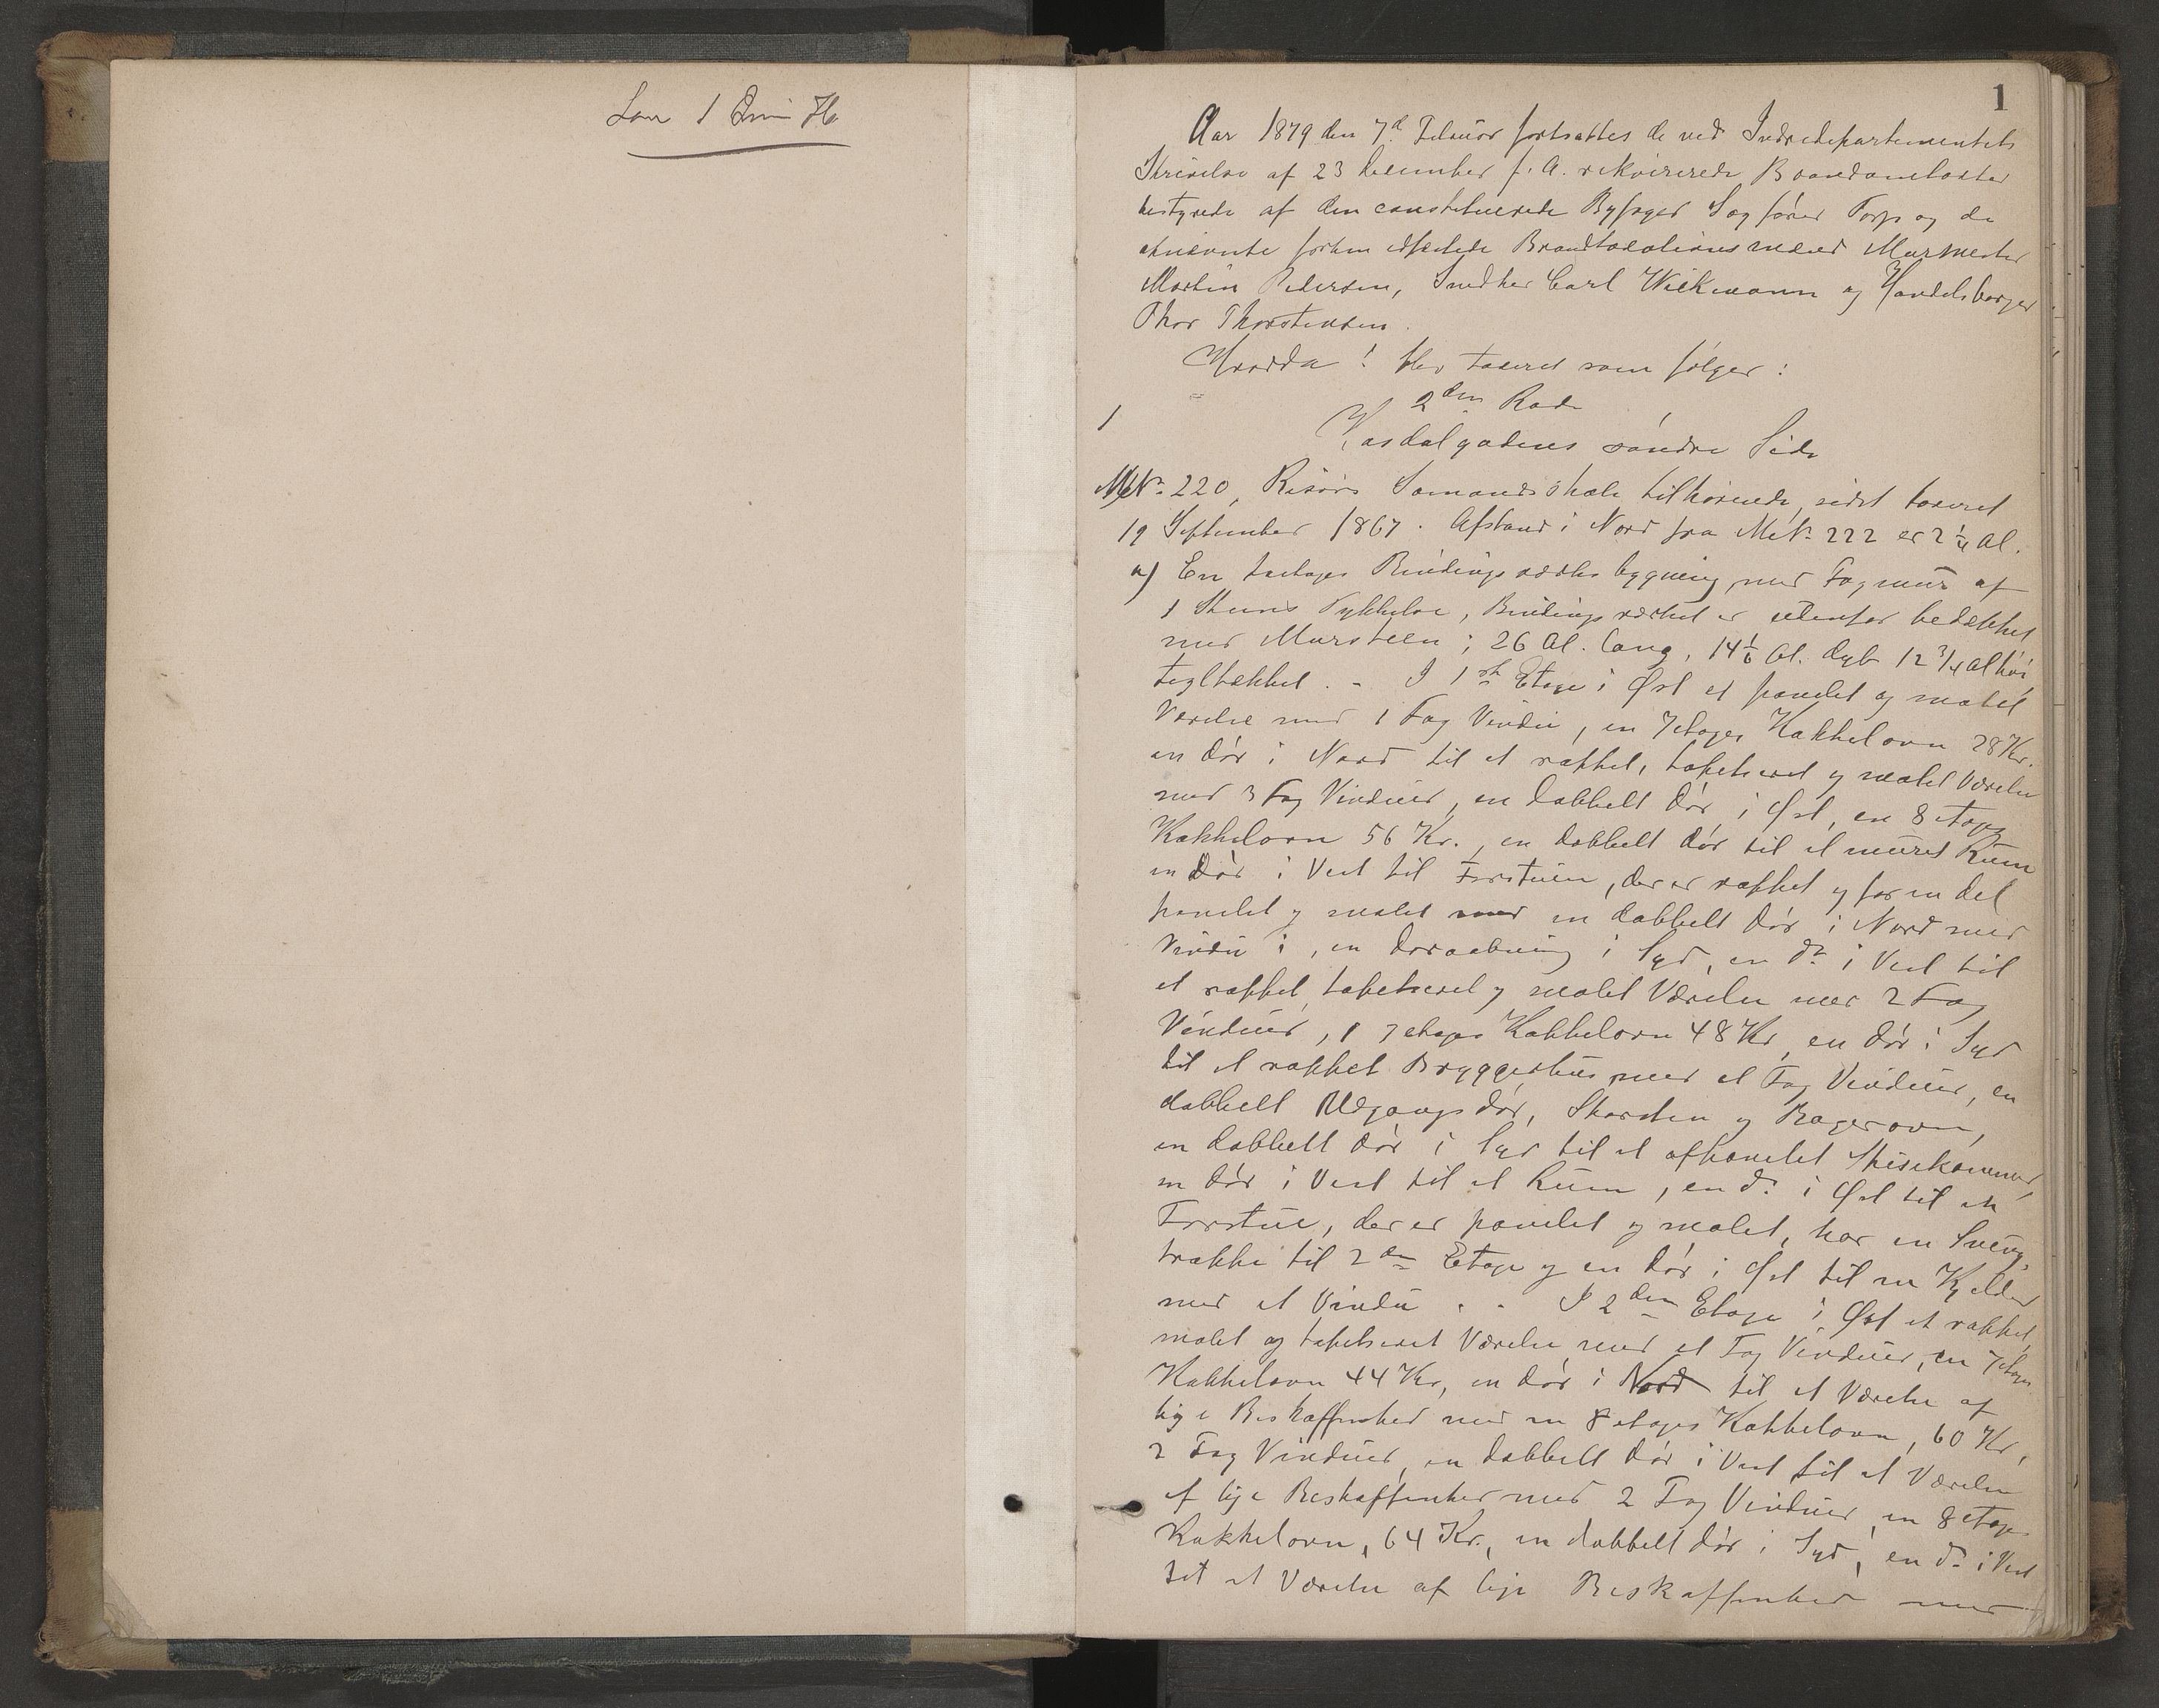 1
Aar 1879 den 7d Februar fortsattes de ved Indredepartementets
Skrivelse af 23 December f. A. rekvirerede Brandomtaxter
bestyrede af den constituerede Byfoged Sagfører Torp og de
opnævnte forhen edfæstede Brandtaxationsmænd Murmester
Martin Pedersen, Snedker Carl Wiekmann og Handelsborger
Thor Thorstensen.
Hvorda! blev taxeret som følger:
2den Rode
1
Kasdalgadens søndre Side
MtNo 220, Risørs Sømandsskole tilhørende, sidst taxeret
19 September 1867. Afstand i Nord fra MtNo 222 er 2 1/4 Al.
a) En toetages Bindingsværks bygning med Fagmur af
1 Steens Tykkelse, Bindingsværket er udenfor bedækket
med Mursteen; 26 Al. lang, 14 1/6 Al. dyb 12 3/4 Al høi,
tegltækket. - I 1ste Etage i Øst et panelet og malet
Værelse med 1 Fag Vindu, en 7etages Kakkelovn 28 Kr.
en Dør i Nord til et rappet, tapetseret og malet Værelse
med 3 Fag Vinduer, en dobbelt Dør i Øst, en 8 etages
Kakkelovn 56 Kr., en dobbelt Dør til et muret Rum
en Dør i Vest til Forstuen, der er rappet og for en del
panelet og malet med en dobbelt Dør i Nord med
Vindu i, en Døraabning i Syd, en do i Vest til
et rappet, tapetseret og malet Værelse med 2 Fag
Vinduer, 1 7 etages Kakkelovn 48 Kr, en Dør i Syd
til et rappet Bryggerhus med et Fag Vinduer, en
dobbelt Udgangsdør, Skorsten og Bagerovn,
en dobbelt Dør i Syd til et afpanelet Spisekammer,
en Dør i Vest til et Rum, en do i Øst til en
Forstue, der er panelet og malet, har en Sving-
trappe til 2den Etage og en Dør i Øst til en Kjelder
med et Vindu. - I 2den Etage i Øst et rappet,
malet og tapetseret Værelse med et Fag Vinduer, en 7 etages
Kakkelovn 44 Kr, en Dør i Nord til et Værelse af
lige Beskaffenhed med en 8 etages Kakkelovn, 60 Kr,
2 Fag Vinduer, en dobbelt Dør i Vest til et Værelse
af lige Beskaffenhed med 2 Fag Vinduer, en 8 etages
Kakkelovn, 64 Kr., en dobbelt Dør i Syd, en do i Vest
til et Værelse af lige Beskaffenhed med